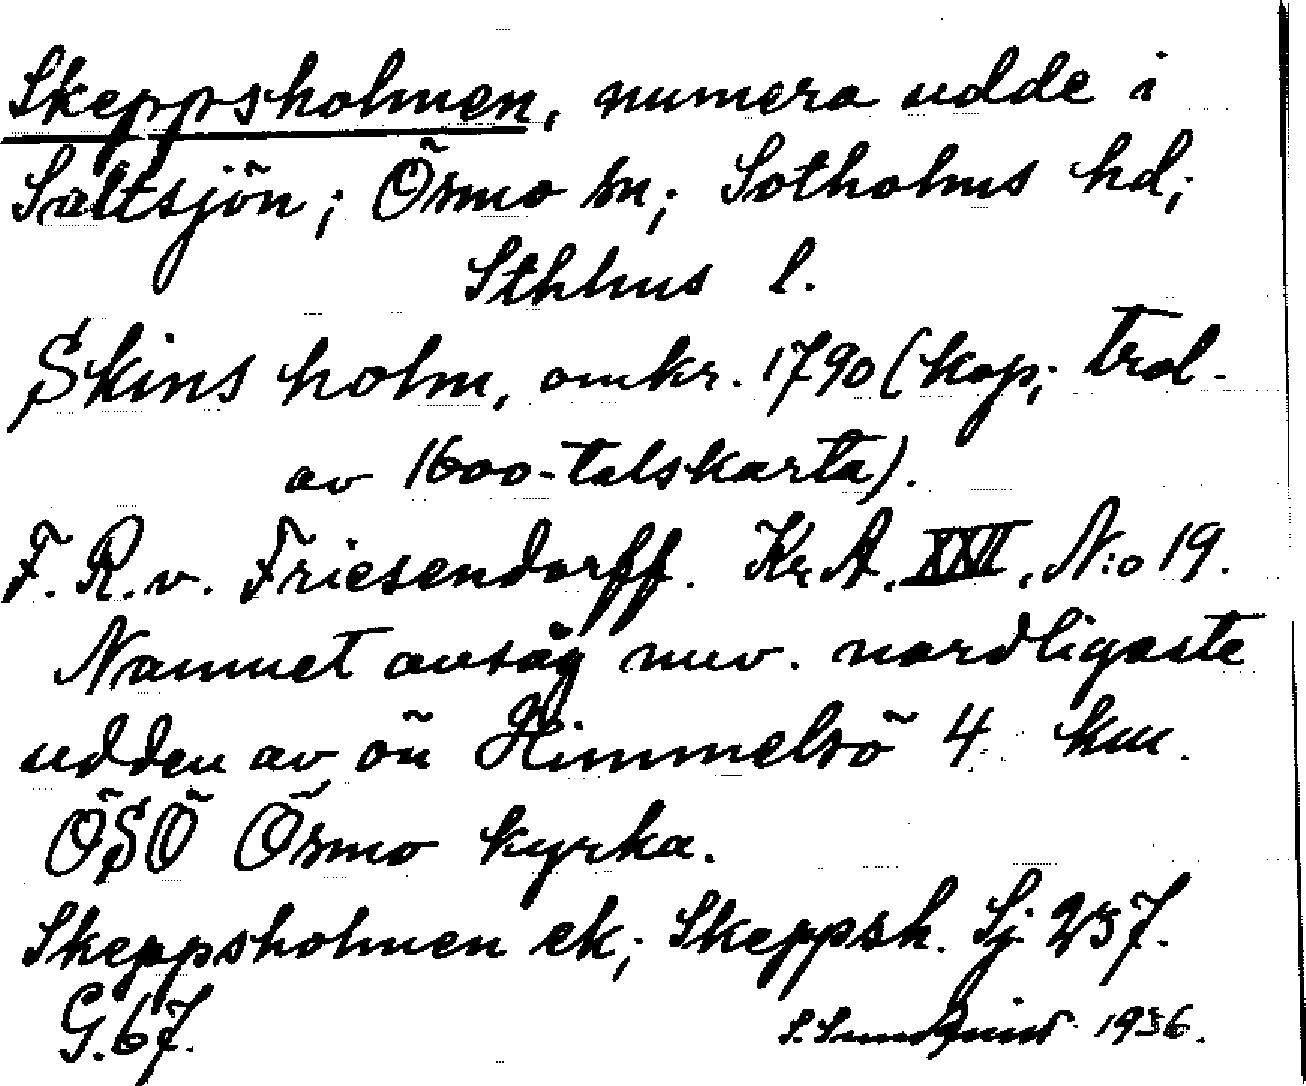 Skeppsholmen, numera udde i
Saltsjön; Ösmo sn; Sotholms hd;
Sthlms l.
Skins holm, omkr. 1790 (kop; trol.
av 1600-talskarta).
F. R. v. Friesendorff. Kr. A. XXII, N:o 19.
Namnet avsåg nuv. nordligaste
udden av ön Himmelsö 4 km.
ÖSÖ Ösmo kyrka.
Skeppsholmen ek; Skeppsh. Sj. 237.
G. 67.
S. Sundqvist 1936.